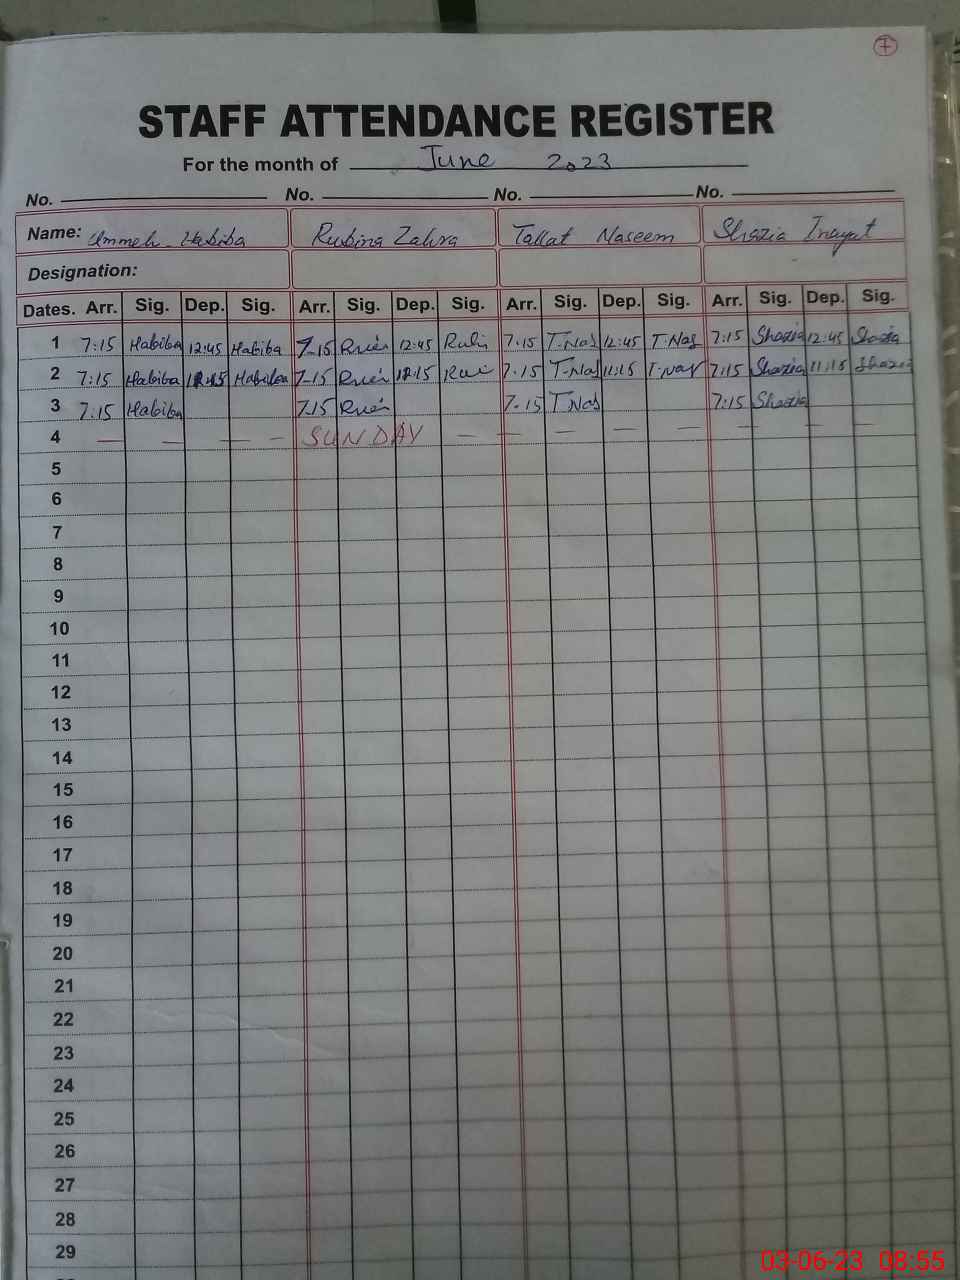 7
STAFF ATTENDANCE REGISTER
For the month of June 2023
No. No. No. No.
Name: Ummeh Habiba Rubina Zahra Tallat Naseem Shazia Inayat
Designation:
Dates. Arr. Sig. Dep. Sig. Arr. Sig. Dep. Sig. Arr. Sig. Dep. Sig. Arr. Sig. Dep. Sig.
1 7:15 Habiba 12:45 Habiba 7-15 12:45 7.15 T-Nas 12:45 T-Nas 7:15 Shazia 12:45 Shazia
2 7:15 Habiba Habiba 7-15 7.15 T-Nas 11:15 T-Nas 7:15 Shazia 11:15 Shazia
3 7:15 Habiba 7.15 7-15 T.Nas 7:15 Shazia
4 — — — — SUNDAY — — — — — — — —
5
6
7
8
9
10
11
12
13
14
15
16
17
18
19
20
21
22
23
24
25
26
27
28
29
03-06-23 08:55